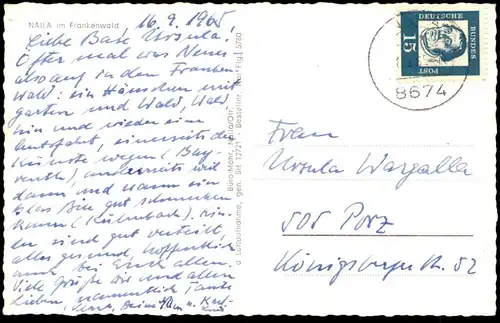 NAILA im Frankenwald
16.9.1965
Liebe Base Ursula!
Öfter mal was Neues
also auf in den Franken-
wald: ein Häuschen mit
Garten und Wald, Wald
hin und wieder eine
Autofahrt, einerseits die
Künste wegen (Bay-
reuth), andererseits weil
dann und wann ein
Glas Bier gut schmecken
kann (Kulmbach). Kin-
der sind gut verteilt,
alles gesund, hoffentlich
auch bei Euch allen.
Viele Grüße Dir und allen
Lieben, namentlich Tante
Büro-Mohr, Naila/Ofr.
Bestellnr.
DEUTSCHE
BUNDES
POST
15
8674
Frau
Ursula Wargalla
505 Porz
Königsberger Str. 52